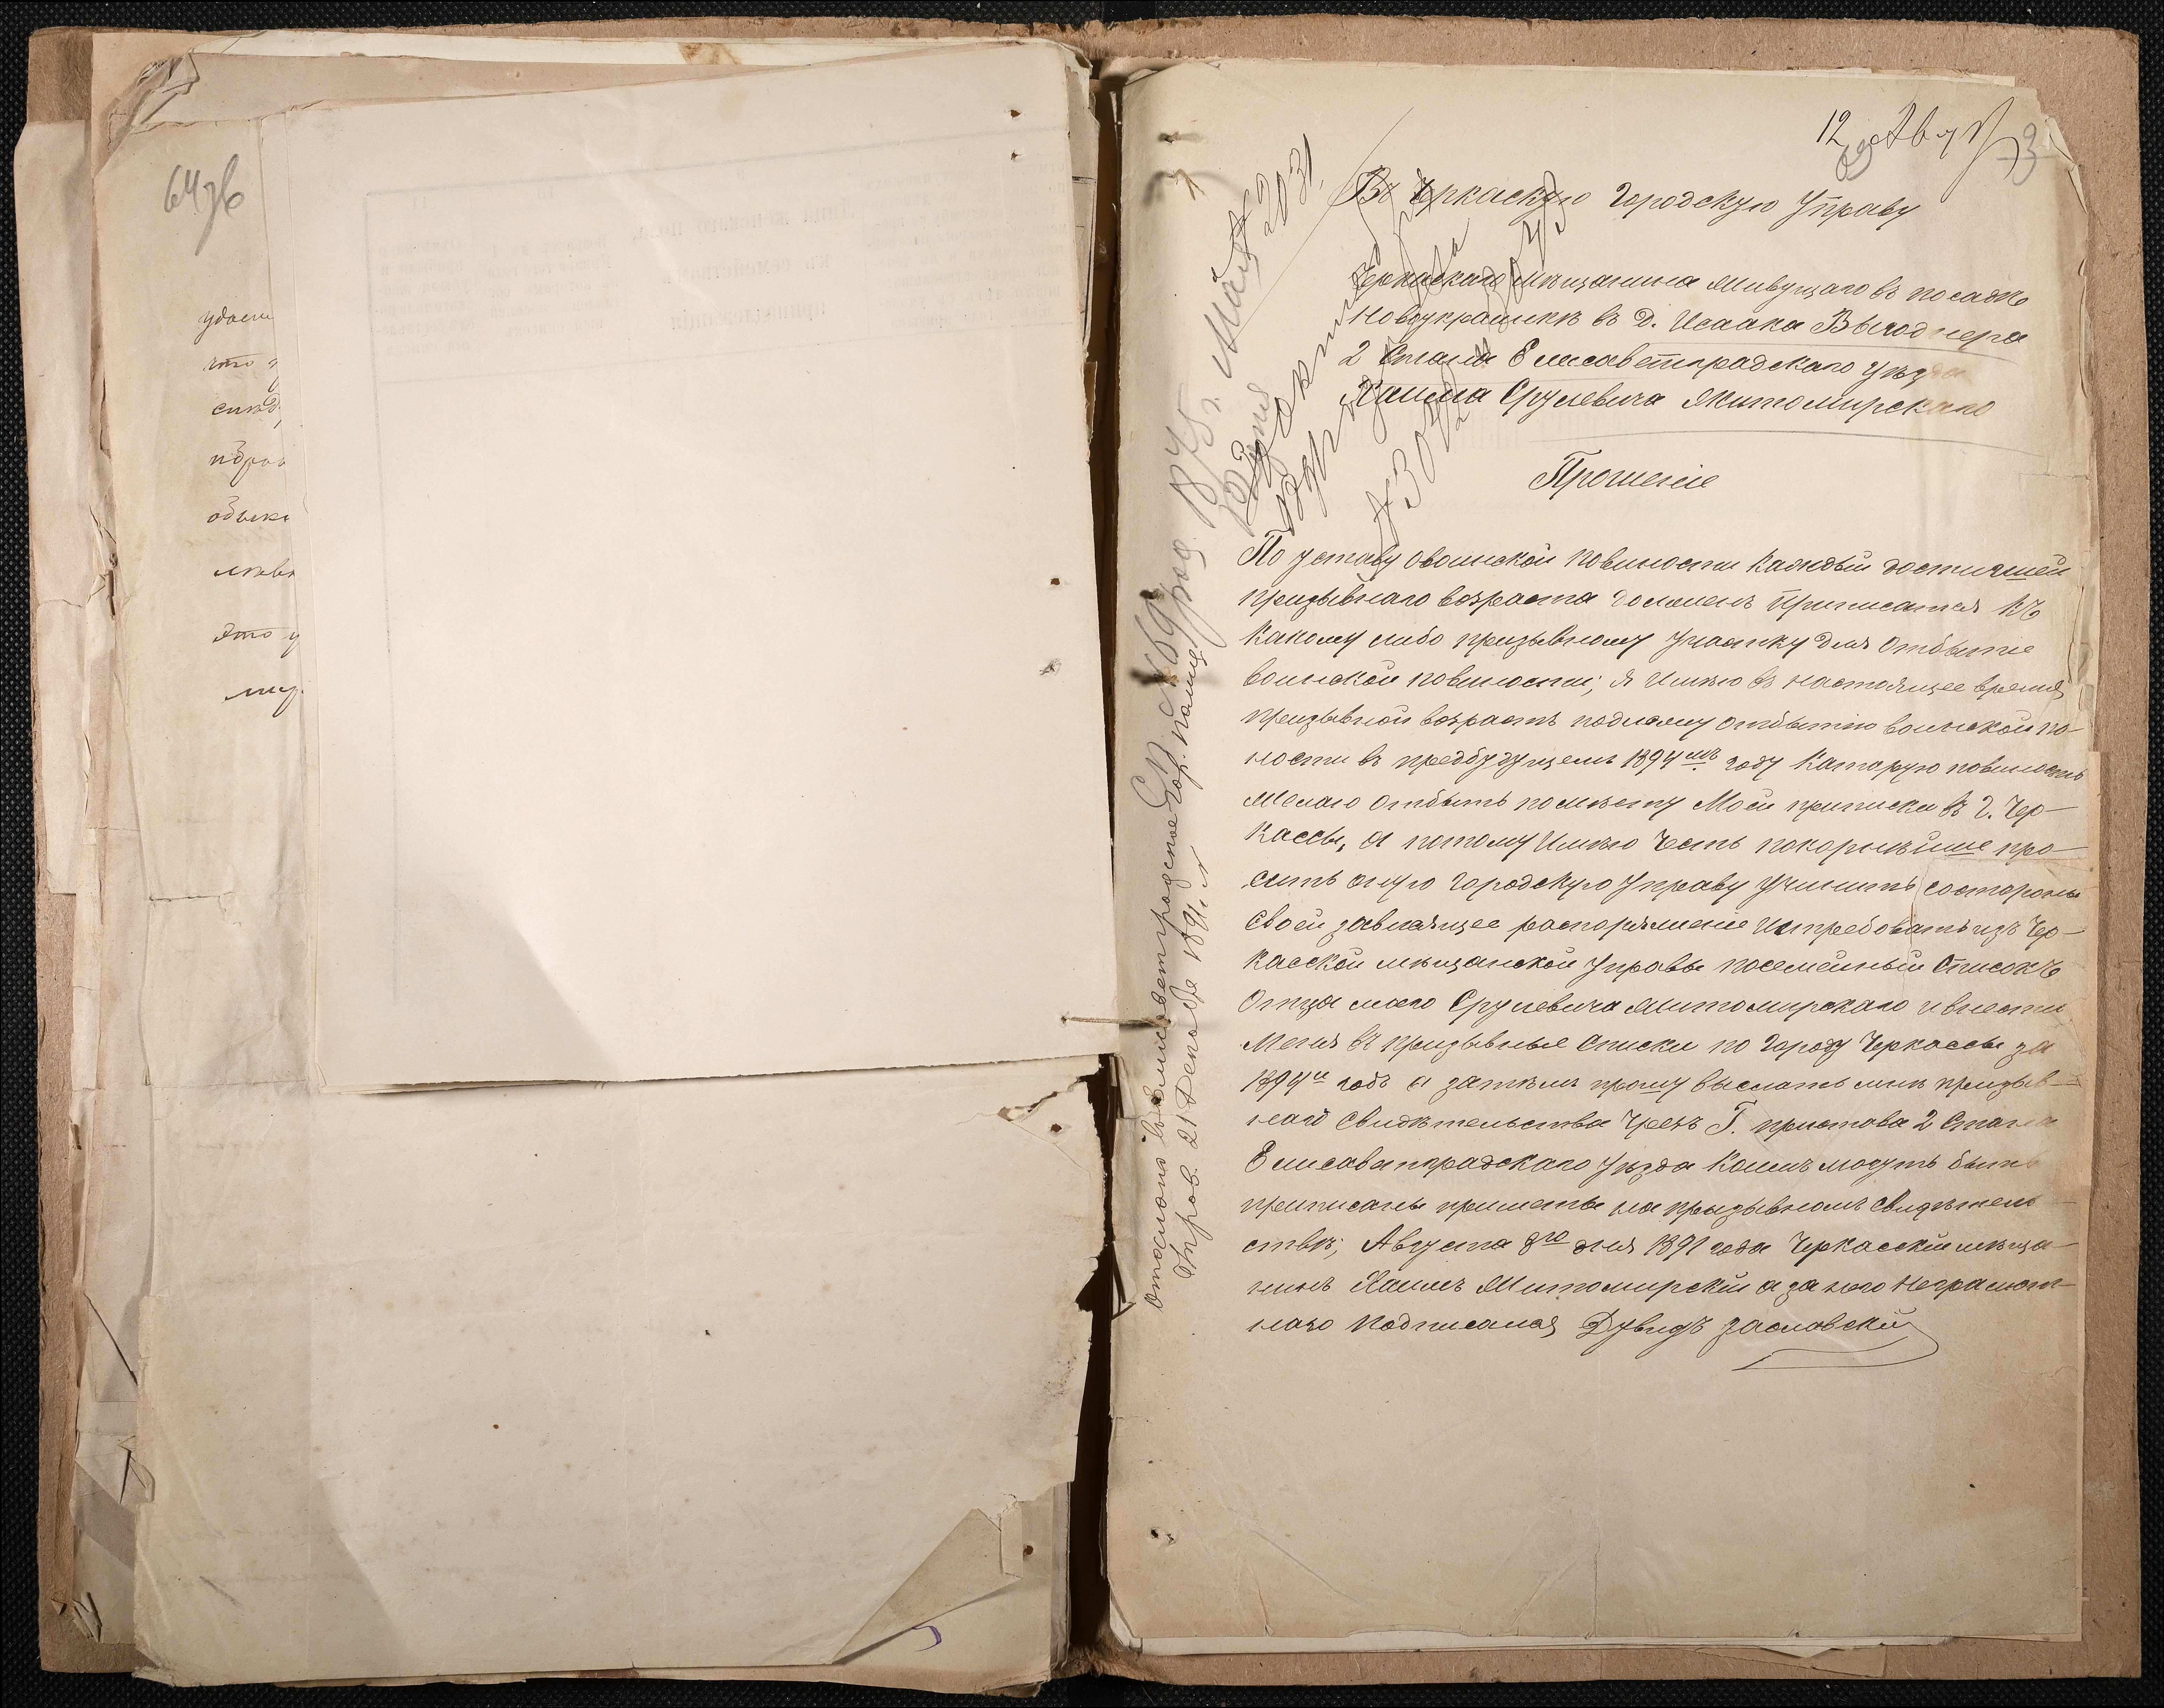 647б
удосто
что
симъ
это
12 Авг
73
Въ Черкаскую Городскую Управу
Черкаскаго мѣщанина живущаго въ посадѣ
Новоукраинкѣ въ д. Исаака Выгоднера
2 Стана Елисаветградскаго уѣзда
Хаима Срулевича Житомирскаго
Прошеніе
По уставу овоинской повиности каждый достигшей
призывнаго возраста долженъ приписатся къ
какому либо призывному участку для отбытие
воинской повиности; я имѣю въ настоящее время
призывной возрастъ подлежу отбытію воинской по-
ности въ предбудущемъ 1894мъ году которую повиность
желаю отбыть помѣсту моей приписки въ г. Чер-
кассы, а потому имѣю честь покорнѣйше про-
сить оную городскую управу учинить состороны
своей зависящее распоряжение истребовать изъ Чер-
касской мѣщанской управы посемейный списокъ
Отца моего Срулевича Житомирскаго и внести
меня въ призывные списки по городу Черкассы за
1894й годъ а затѣмъ прошу выслать мнѣ призыв-
наго свидѣтельства чрезъ Г. пристава 2 Стана
Елисаветградскаго уѣзда коимъ могутъ быть
приписаны приметы на призывномъ свидѣтель-
ствѣ; Августа 8го дня 1891 года Черкасскій мѣща-
нинъ Хаимъ Житомирскій а за него неграмот-
наго подписался Дувидъ Засловскій
род. 1875 г. Мая
№ 2031
Отослано въ Елисаветградское Гор. полиц.
Управ. 21 Декабр 1891 г.